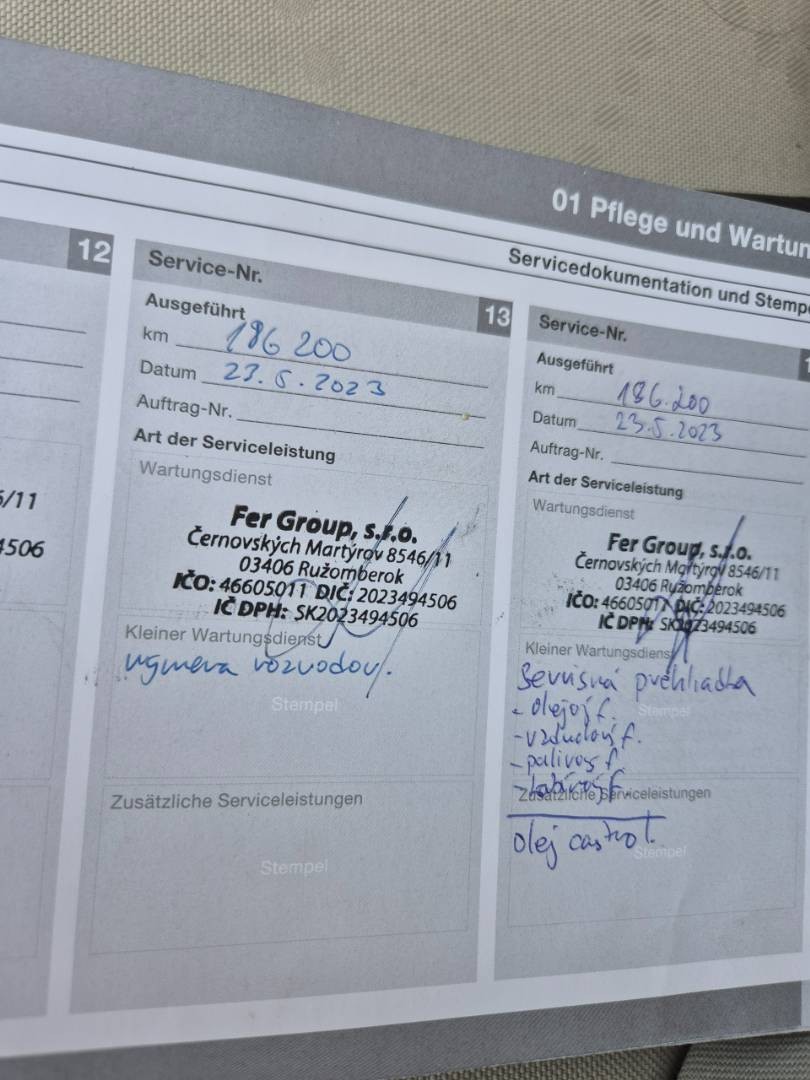 01 Pflege und Wartun
Servicedokumentation und Stempe
12
6/11
4506
Service-Nr.
13
Ausgeführt
km 186 200
Datum 23.5.2023
Auftrag-Nr.
Art der Serviceleistung
Wartungsdienst
Fer Group, s.r.o.
Černovských Martýrov 8546/11
03406 Ružomberok
IČO: 46605011 DIČ: 2023494506
IČ DPH: SK2023494506
Kleiner Wartungsdienst
výmena rozvodov.
Stempel
Zusätzliche Serviceleistungen
Stempel
Service-Nr.
1
Ausgeführt
km 186.200
Datum 23.5.2023
Auftrag-Nr.
Art der Serviceleistung
Wartungsdienst
Fer Group, s.r.o.
Černovských Martýrov 8546/11
03406 Ružomberok
IČO: 46605011 DIČ: 2023494506
IČ DPH: SK2023494506
Kleiner Wartungsdienst
Servisná prehliadka
- olejový f.
Stempel
- vzduchový f.
- palivový f
- kabínový f
Zusätzliche Serviceleistungen
olej castrol.
Stempel